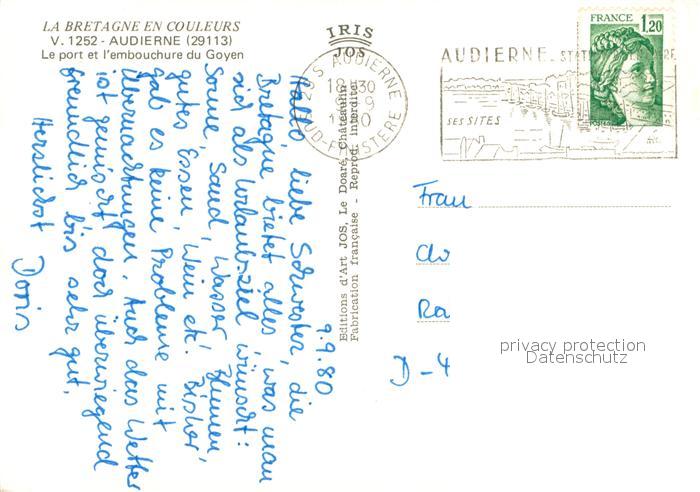 LA BRETAGNE EN COULEURS
V. 1252 - AUDIERNE (29113)
Le port et l'embouchure du Goyen
IRIS
JOS
Editions d'Art JOS, Le Doaré, Châteaulin
Fabrication française - Reprod. interdite
29 S AUDIERNE
18 30
9 9
SUD-FINISTERE
AUDIERNE
SES SITES
FRANCE
1,20
9.9.80
Hallo liebe Schwester, die
Bretagne bietet alles, was man
sich als Urlaubsziel wünscht:
Sonne, Sand, Wasser, Blumen,
gutes Essen, Wein etc. Bisher
gab es keine Probleme mit
Übernachtungen. Auch das Wetter
ist gemischt doch überwiegend
freundlich bis sehr gut.
Herzlichst
Doris
Frau
Ra
D-4
privacy protection
Datenschutz